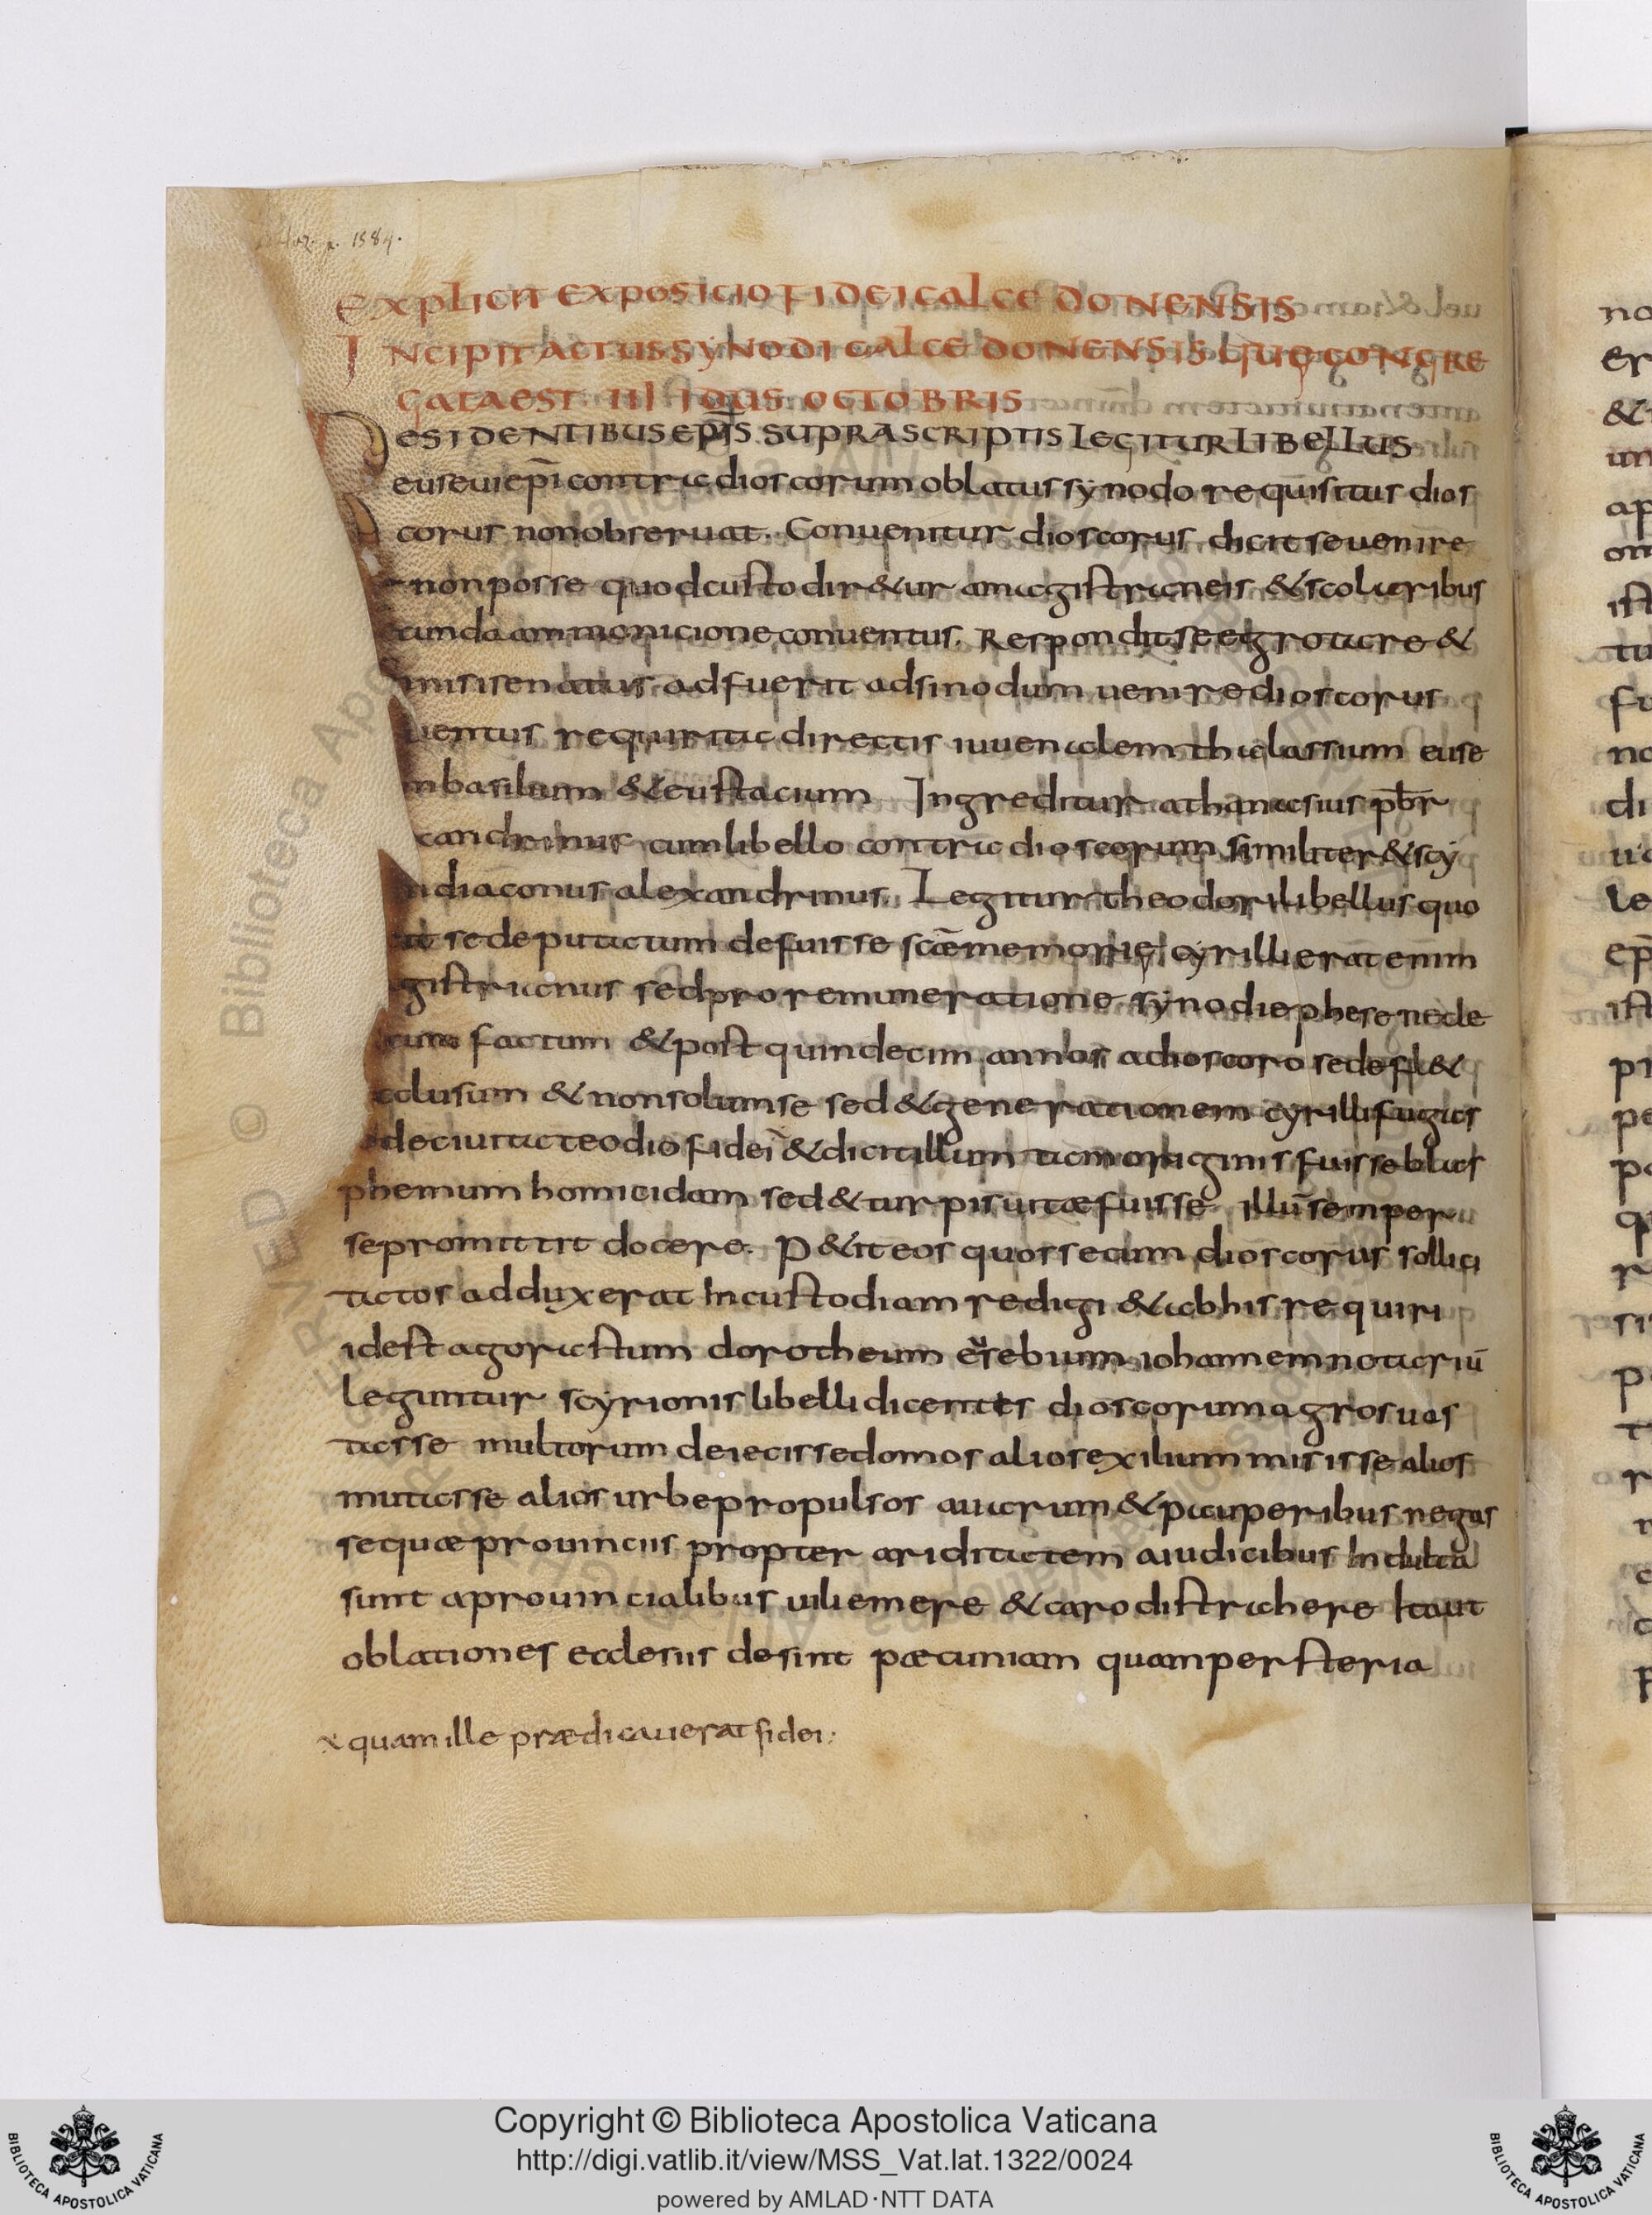 1584.
EXPLICIT EXPOSICIO FIDEI CALCEDONENSIS
INCIPIT ACTUS SYNODI CALCEDONENSIS QUĘ CONGRE
GATA EST IIII IDUS OCTOBRIS
RESIDENTIBUS EPĪS SUPRASCRIPTIS LEGITUR LIBELLUS
eusevi epī contra dioscorum oblatus synodo requisitus dios
corus non observat. Convenitur dioscorus dicit se venire
non posse quod custodiretur a magistrianeis & scolaribus
cunda ammonicione conventus. Respondit se egrotare &
misi senatus adfuerit ad sinodum venire dioscorus
ventus requirit a directis iuvenalem thalassium euse
m basilium & eustacium Ingreditur athanasius pbr
xandrinus cum libello contra dioscorum similiter & scy
n diaconus alexandrinus. Legitur theodori libellus quo
it se deputatum defuisse scae memorię cyrilli erat enim
gistrianus sed pro remuneratione synodi ephesene de
rum factum & post quindecim annos a dioscoro se defl&
clusum & non solum se sed & generationem cyrilli fugas
de civitate odio fidei & dicit illum tam originis fuisse blas
phemum homicidam sed & turpis vitæ fuisse illū semper
se promittit docere. P&it eos quos secum dioscorus sollici
tatos adduxerat In custodiam redigi & ab his requiri
id est agorastum dorotheum eusebium iohannem notariū
Leguntur scyrionis libelli dicentes dioscorum agros vas
tasse multorum deiecisse domos alios exilium misisse alios
mutasse alios urbe propulsos avarum & pauperibus negas
se quæ provinciis propter ariditatem a iudicibus Indulta
sunt a provincialibus vili emere & caro distrahere Ita ut
oblationes ecclesiis desint pæcuniam quam peristeria
quam ille prædicaverat fidei:
no
er
&
un
ap
om
ist
tu
fu
no
di
ua
le
ep̄
ist
pr
pe
po
qu
r
si
p
t
r
Copyright © Biblioteca Apostolica Vaticana
http://digi.vatlib.it/view/MSS_Vat.lat.1322/0024
powered by AMLAD·NTT DATA
BIBLIOTECA APOSTOLICA VATICANA
BIBLIOTECA APOSTOLICA VATICANA